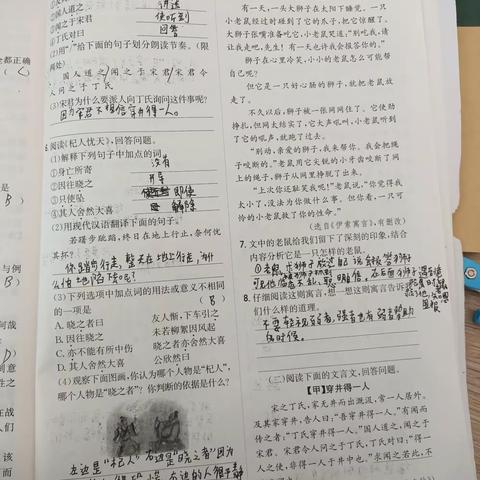 ②国人道之 讲述
③闻之于宋君 使听到
④丁氏对曰 回答
(2)用“/”给下面的句子划分朗读节奏。(限
两处)
国人道之/闻之于宋君/宋君令
人问之于丁氏
(3)宋君为什么要派人向丁氏询问这件事呢?
因为宋君不相信穿井得一人。
阅读《杞人忧天》,回答问题。
(1)解释下列句子中加点的词。
①身亡所寄 没有
②因往晓之 开导
③只使坠 即使
④其人舍然大喜 解除
(2)用现代汉语翻译下面的句子。
若躇步跐蹈,终日在地上行止,奈何忧
其坏?
你踏步行走,整天在地上行走,为什
么怕地陷落呢?
(3)下列选项中加点词的用法或意义不相同
的一项是 ( B )
A.晓之者曰 友人惭,下车引之
B.因往晓之 未若柳絮因风起
C.亦不能有所中伤 晓之者亦舍然大喜
D.其人舍然大喜 公欣然曰
(4)观察下面图画,你认为哪个人物是“杞人”,
哪个人物是“晓之者”?你判断的依据是什么?
左边是“杞人”右边是“晓之者”因为
右边的人很
有一天,一头大狮子在太阳下睡觉。一只
小老鼠经过时碰到了它的爪子,把它惊醒了。
大狮子张嘴准备吃它,小老鼠哭道:“别吃我,请
让我走吧,先生!有一天也许我会报答你的。”
狮子在心里冷笑,小小的老鼠怎么可能帮
自己呢?
但它是一只好心肠的狮子,就把小老鼠放
走了。
不久以后,狮子被一张网网住了。它使劲
挣扎,但网太结实了,它大声吼叫,小老鼠听到
了它的吼声,就跑了过去。
“别动,亲爱的狮子,我来帮你。我会把绳
子咬断的。”老鼠用它尖锐的小牙齿咬断了网
上的绳子,狮子从网里挣脱了出来。
“上次你还躲笑我呢!”老鼠说,“你觉得我
太小了,没法为你做什么事。但你看,一只可
怜的小老鼠救了你的性命。”
(选自《伊索寓言》,有删改)
7.文中的老鼠给我们留下了深刻的印象,结合
内容分析它是一只怎样的老鼠。
8.仔细阅读这则寓言,想一想这则寓言告诉
们什么样的道理。
不要轻视弱者,强者也有弱者帮助
的时候。
(二)阅读下面的文言文,回答问题。
【甲】穿井得一人
宋之丁氏,家无井而出溉汲,常一人居外。
及其家穿井,告人曰:“吾穿井得一人。”有闻而
传之者:“丁氏穿井得一人。”国人道之,闻之于
宋君。宋君令人问之于丁氏,丁氏对曰:“得一
人之使,非得一人于井中也。”求闻之若此,不